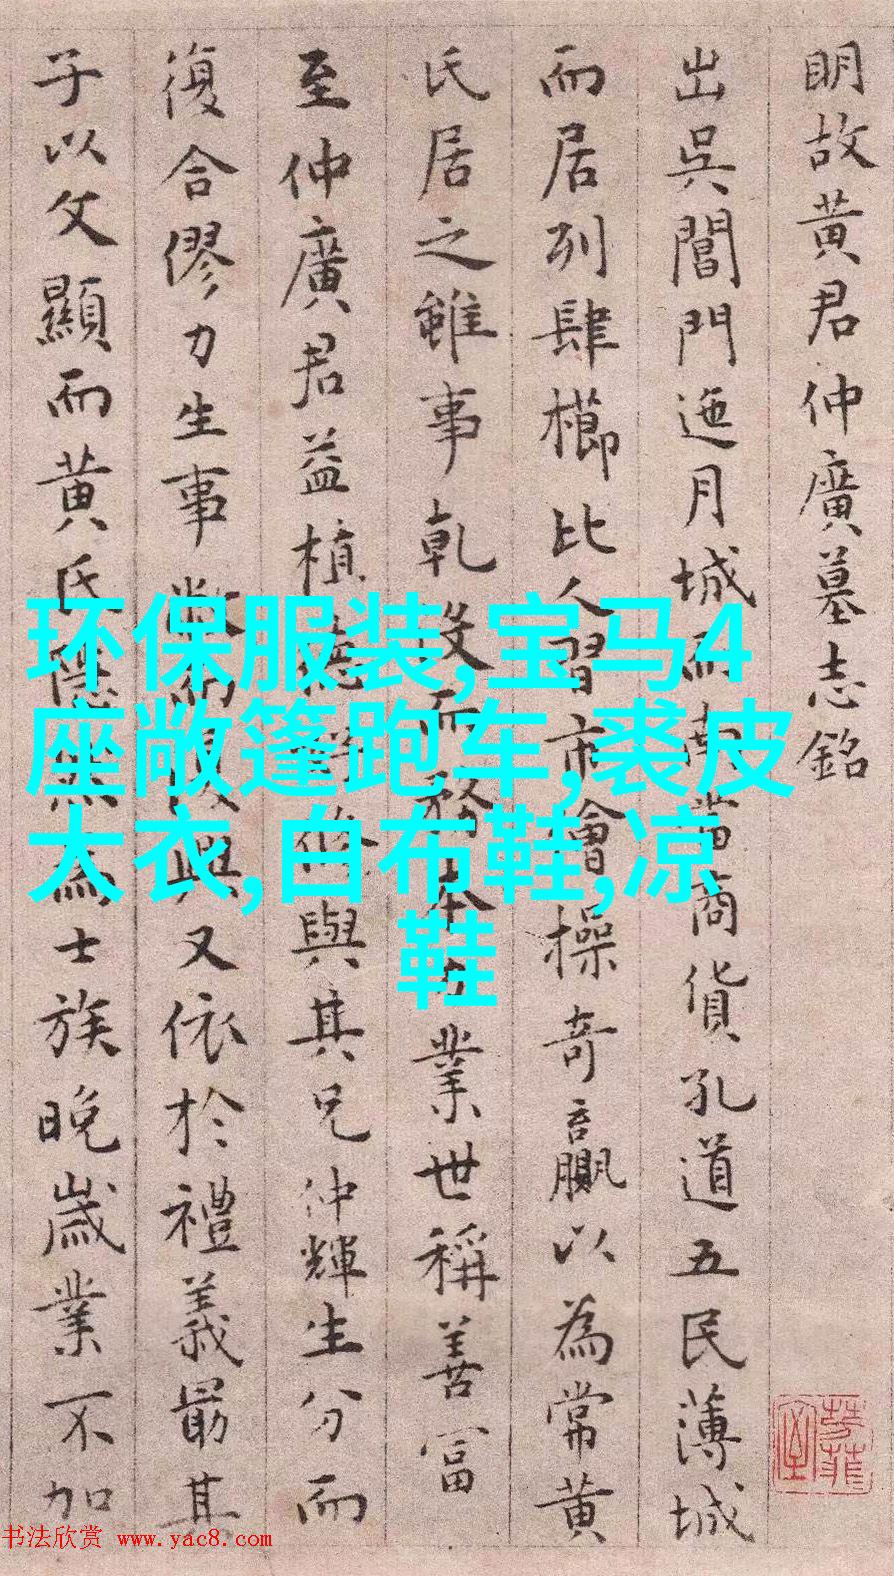 明故黄君仲廣墓志銘
出吳閶門迤月城而南當商貨孔道五民薄城
而居列肆櫛比人習市會操奇贏以為常黄
氏居之雖事乾没而務本力業世稱善富
至仲廣君益植德好脩與其兄仲輝生分而
復合僇力生事敝而復興又依於禮義最其
子以文顯而黄氏隱然為士族晚歲業不加
环保服装,宝马4
座敞篷跑车,裘皮
大衣,白布鞋,凉
鞋
书法欣赏 www.yac8.com